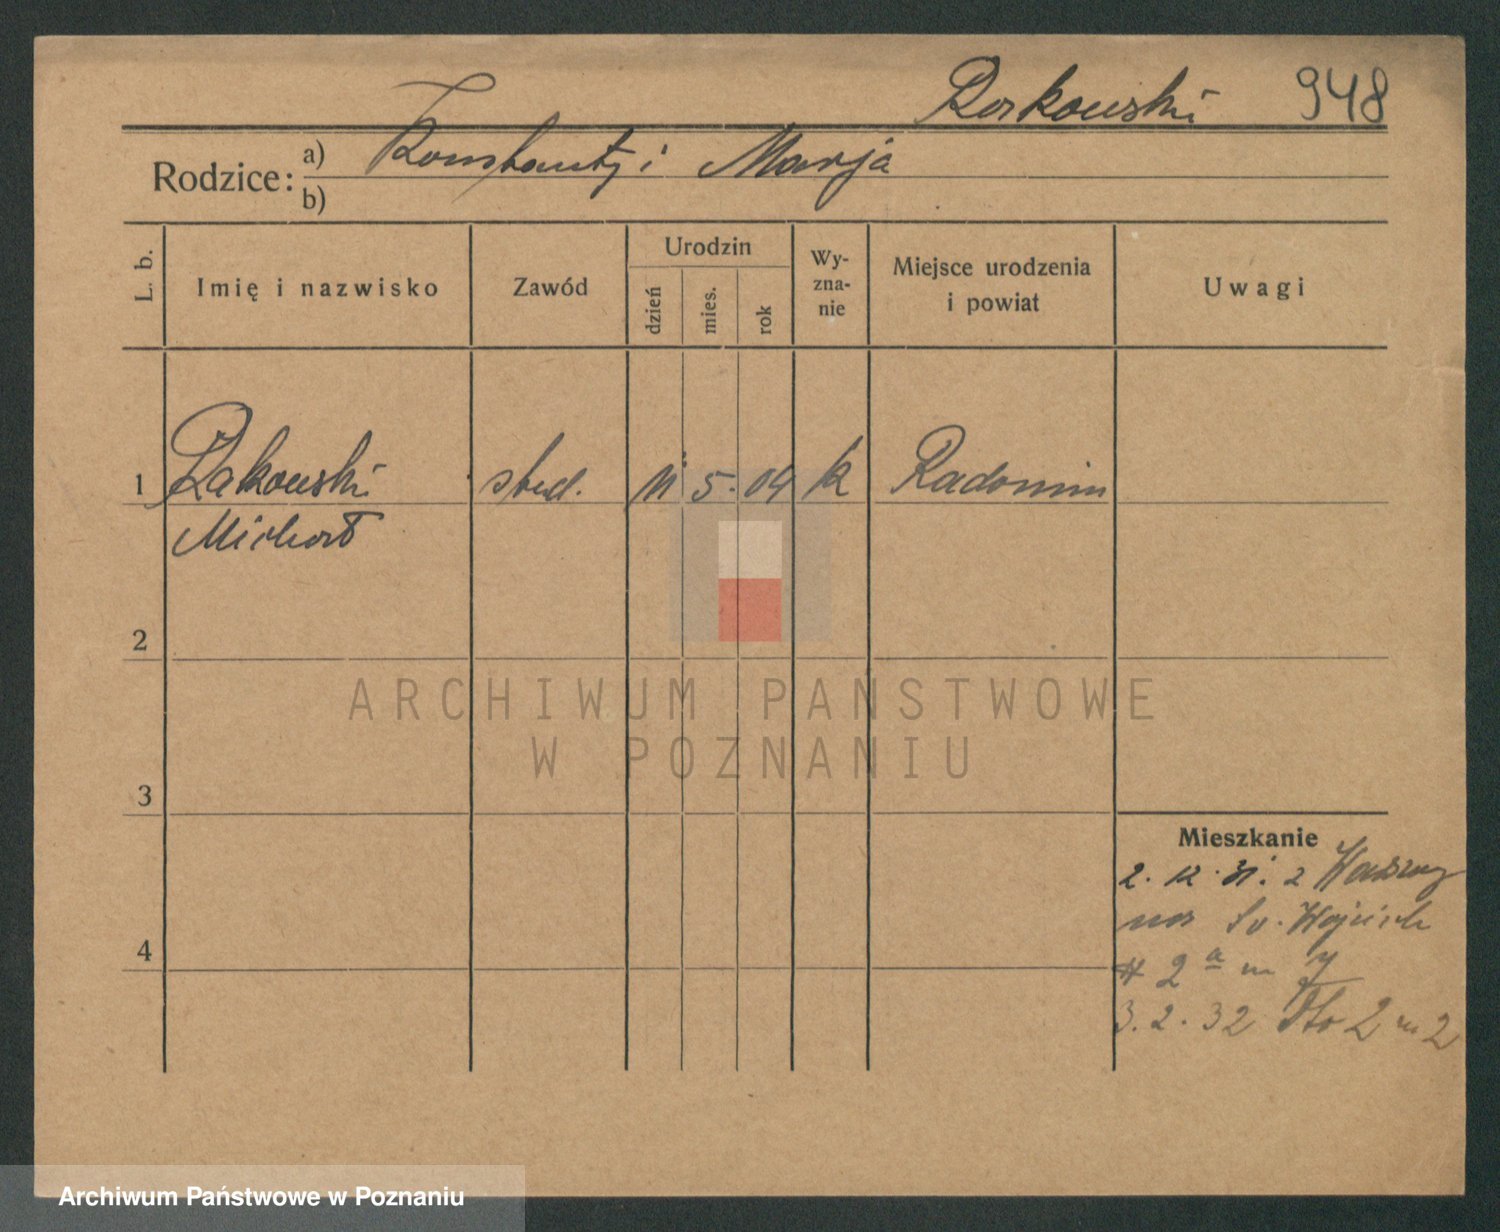 948
Rodzice: a) Konstanty i Marja
b)
L. b.
Imię i nazwisko
Zawód
Urodzin
dzień
mies.
rok
Wy-
zna-
nie
Miejsce urodzenia
i powiat
Uwagi
1 Rakowski stud. 11 5. 04 k Radomin
Michał
2
ARCHIWUM PAŃSTWOWE
W POZNANIU
3
Mieszkanie
2. 12. 31. z
Św. Wojciech
4
# 2 a m 7
3. 2. 32 Dto 2 m 2
Archiwum Państwowe w Poznaniu